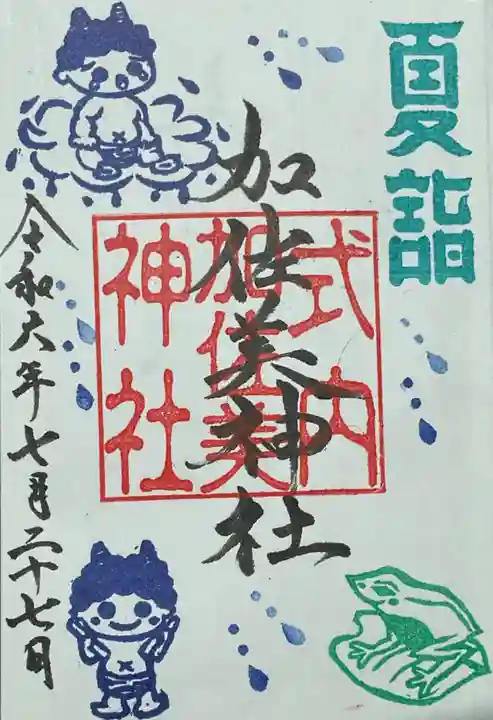 夏詣
加佐美神社
式内
加佐美
神社
令和六年七月二十七日